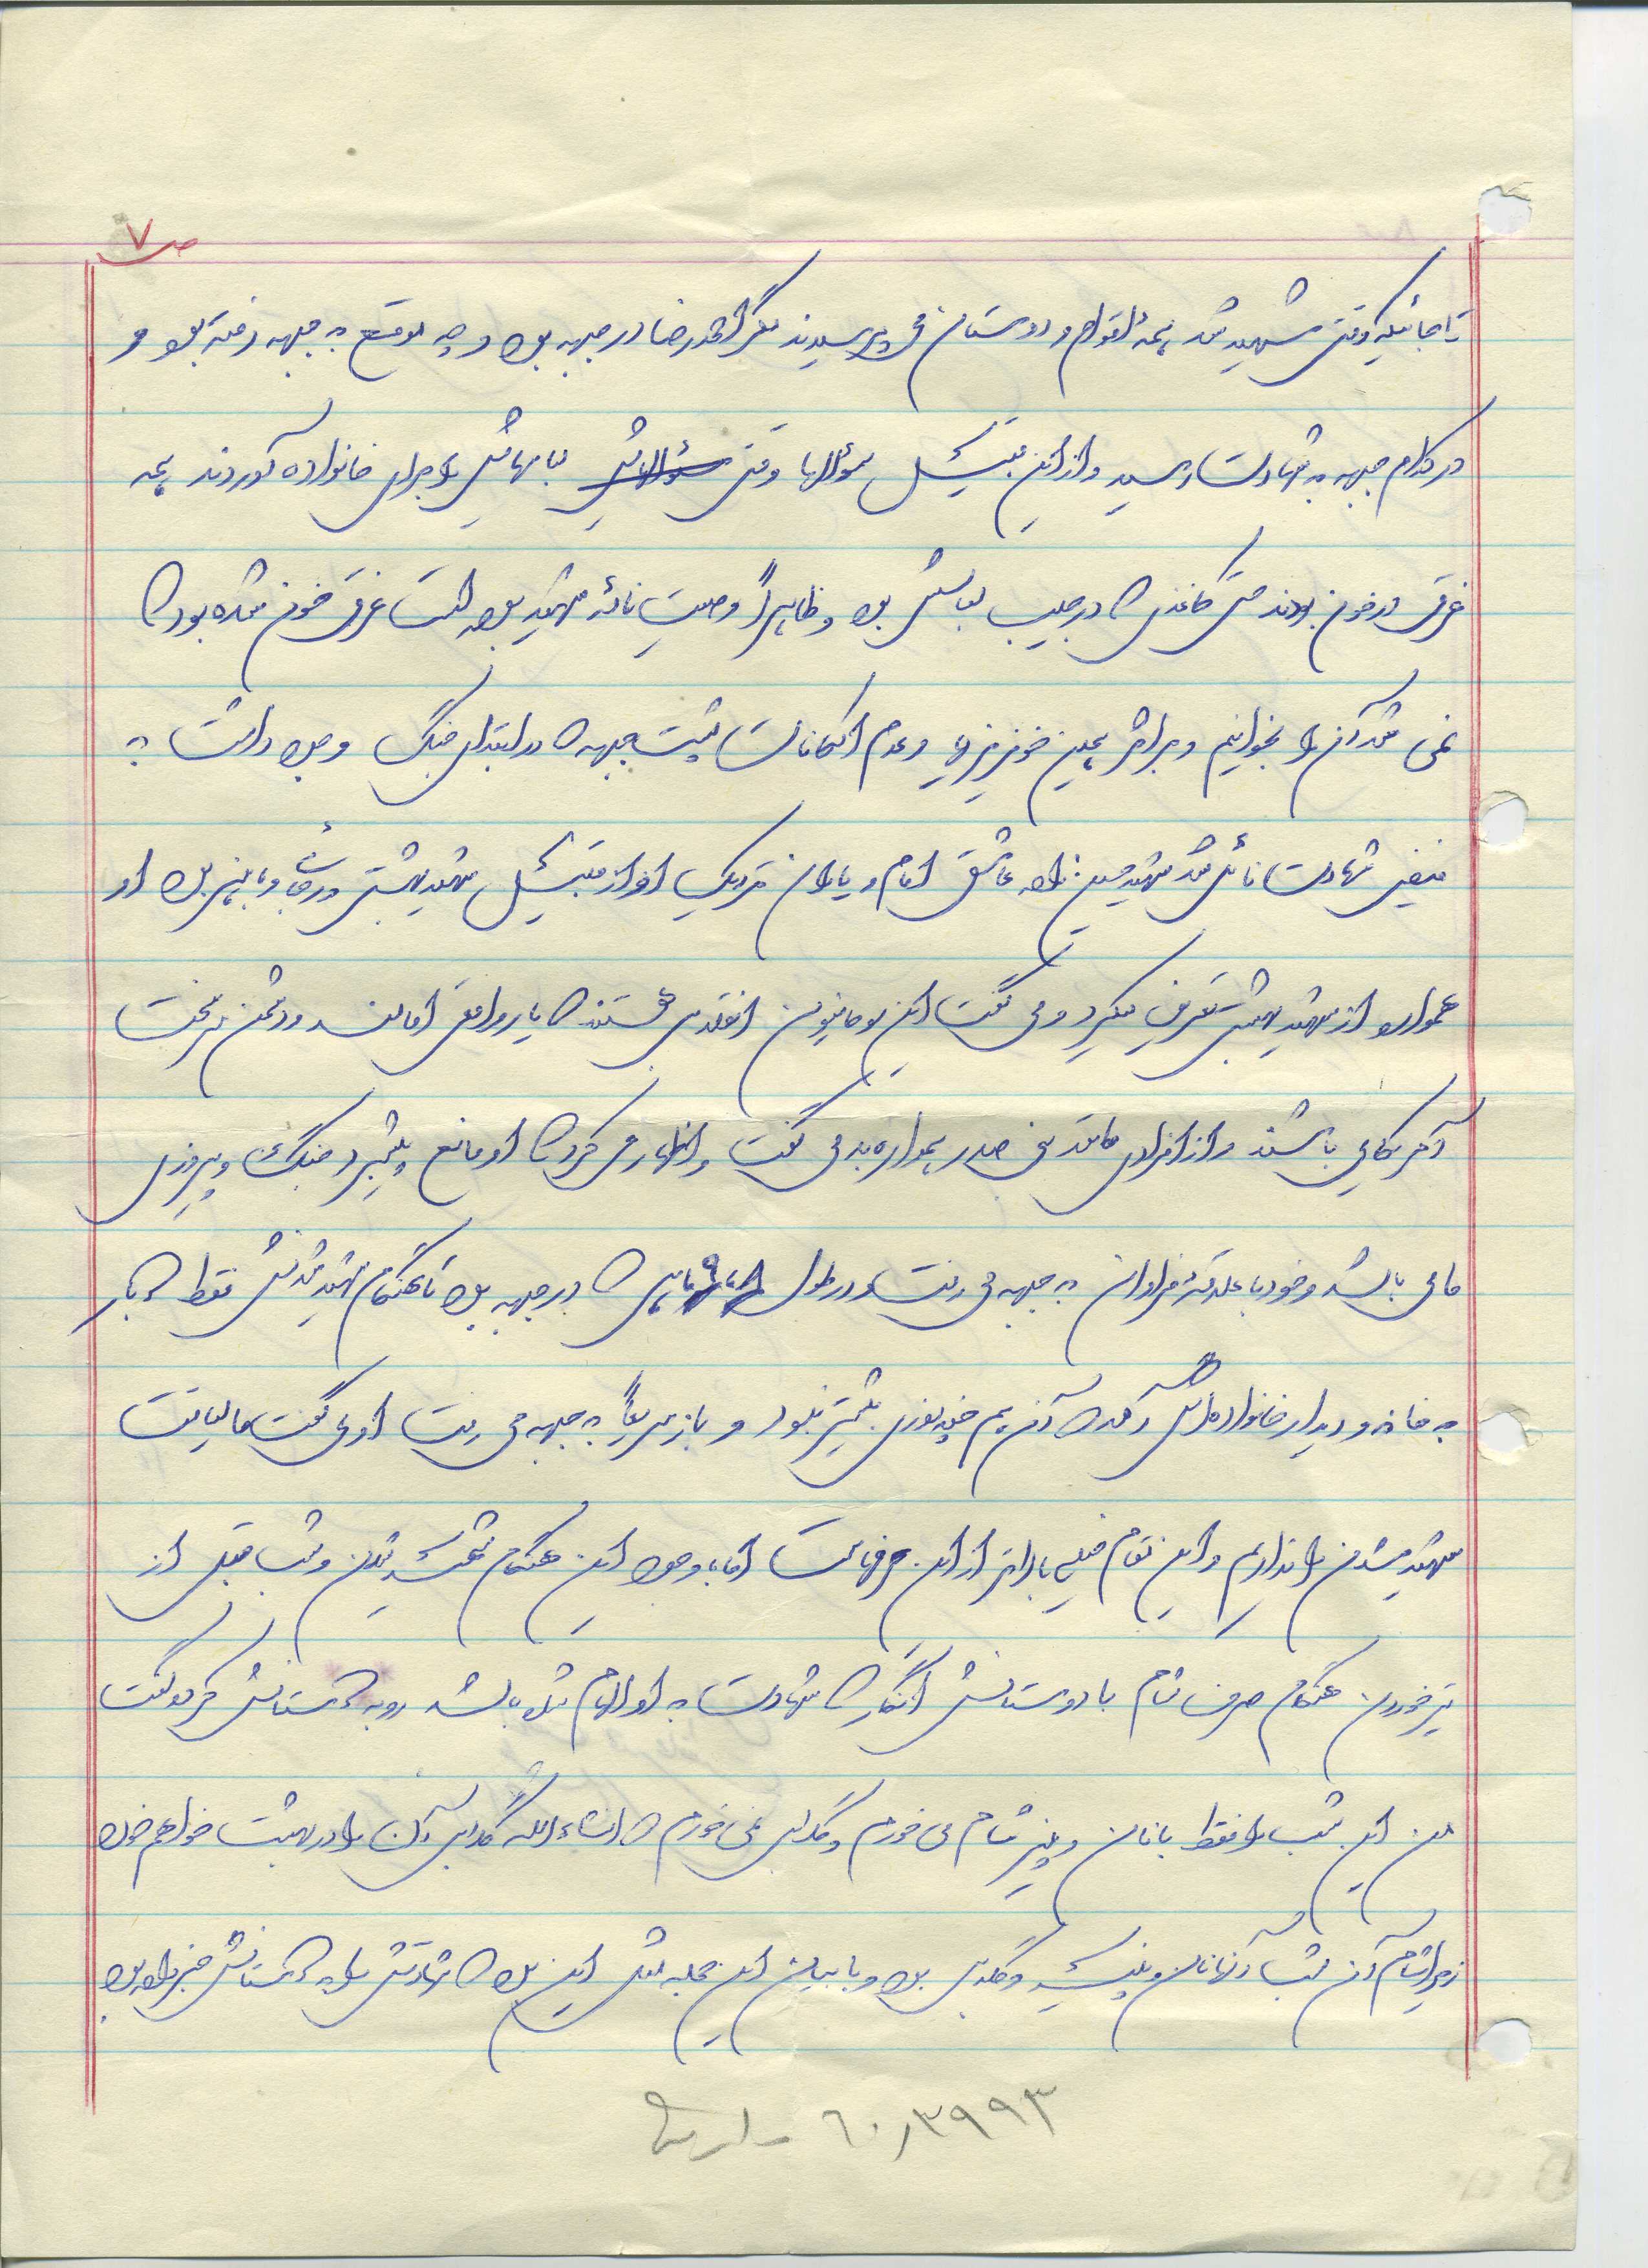 ص ۷
تا جائیکه وقتی شهید شد همهٔ اقوام و دوستان می پرسیدند مگر احمدرضا در جبهه بود و چه موقع به جبهه رفته بود و
در کدام جبهه به شهادت رسید و از این قبیل سؤالها وقتی لباسهایش را برای خانواده آوردند همه
غرق در خون بودند حتی کاغذی که در جیب لباسش بود و ظاهراً وصیت نامهٔ شهید بوده است غرق خون شده بود که
نمی شد آن را بخوانیم و بر اثر همین خونریزی و عدم امکانات پشت جبهه که در ابتدای جنگ وجود داشت به
فیض شهادت نائل شد شهید عاشق امام و یاران نزدیک او از قبیل شهید بهشتی و رجائی و باهنر بود او
همواره از شهید بهشتی تعریف میکرد و می گفت این روحانیون انقلابی هستند که یار واقعی امامند و دشمن سرسخت
آمریکا می باشند و از افرادی مانند بنی صدر همواره بد می گفت و اظهار می کرد که او مانع پیشبرد جنگ و پیروزی
ما می باشد و خود با علاقهٔ فراوان به جبهه می رفت و در طول ماهی که در جبهه بود تا هنگام شهید شدنش فقط بار
به خانه و دیدار خانواده اش آمد که آن هم چند روزی بیشتر نبود و باز سریعاً به جبهه می رفت او می گفت ما لیاقت
شهید شدن را نداریم و این مقام خیلی بالاتر از این حرفهاست اما با وجود این هنگام شهید شدن و شب قبل از
تیر خوردن هنگام صرف شام با دوستانش انگار که شهادت به او الهام شده باشد رو به دوستانش کرد و گفت
من این شب را فقط با نان و پنیر شام می خورم و گلابی نمی خورم که انشاءالله گلابی آن را در بهشت خواهم خورد
زیرا شام آن شب آنها نان و پنیر و گلابی بود و با بیان این جمله مثل این بود که شهادتش را به دوستانش خبر داده بود
۶۰۱۳۹۹۳